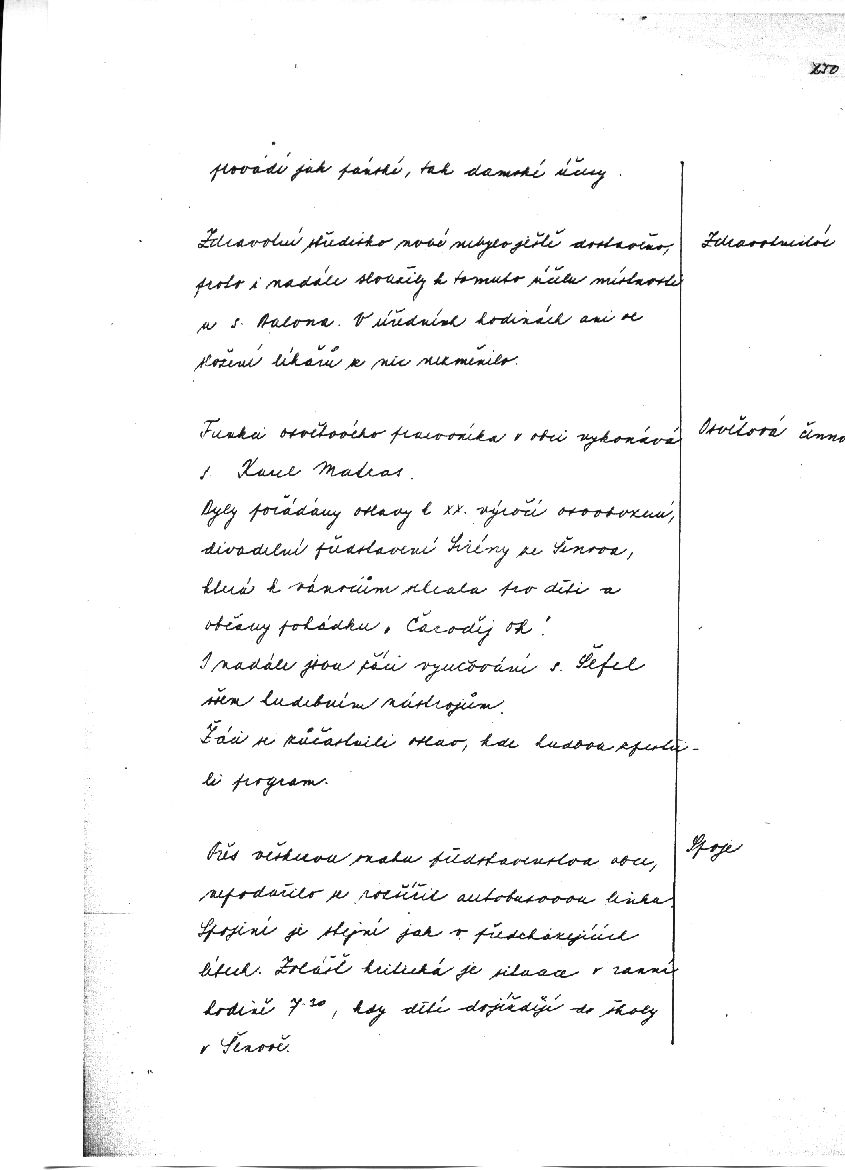 250
provádí jak pánské, tak damské účesy.
Zdravotní středisko nové nebylo ještě dostavěno,
Zdravotnictví
proto i nadále sloužily k tomuto účelu místnosti
u s. Balona. V úředních hodinách ani ve
složení lékářů se nic nezměnilo.
Funkci osvětového pracovníka v obci vykonává
Osvětová činno
s. Karel Madras.
Byly pořádány oslavy k XX. výročí osvobození,
divadelní představení Sirény ze Šenova,
která k vánocům sehrála pro děti a
občany pohádku „Čaroděj Oh!
I nadále jsou žáci vyučováni s. Šefel
všem hudebním nástrojům.
Žáci se zůčastnili oslav, kde hudbou zpestři-
li program.
Přes veškerou snahu představenstva obce,
Spoje
nepodařilo se rozšířit autobusovou linku.
Spojení je stejné jak v předcházejících
létech. Zvlášť kritická je situace v ranní
hodině 7.20, kdy děti dojíždějí do školy
v Šenově.